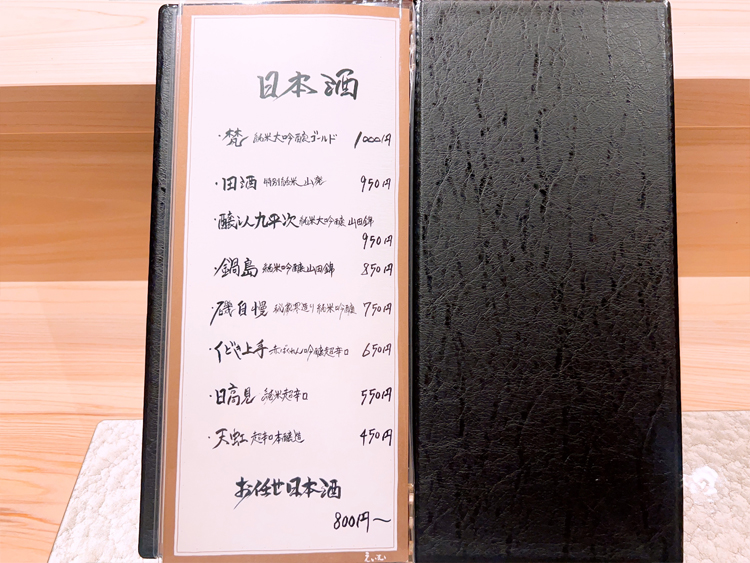 日本酒
・梵 純米大吟醸ゴールド 1000円
・田酒 特別純米 山廃 950円
・醸し人九平次 純米大吟醸 山田錦
950円
・鍋島 純米吟醸山田錦 850円
・磯自慢 純米吟醸 750円
・くどき上手 ばくれん吟醸超辛口 650円
・日高見 純米超辛口 550円
・天虹 超辛口本醸造 450円
お任せ日本酒
800円〜